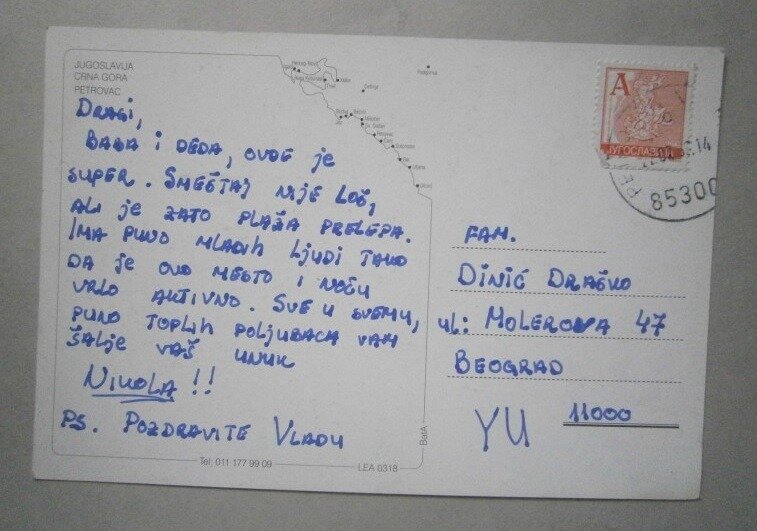 JUGOSLAVIJA
CRNA GORA
PETROVAC
DRAGI,
BABA I DEDA, OVDE JE
SUPER. SMEŠTAJ NIJE LOŠ,
ALI JE ZATO PLAŽA PRELEPA.
IMA PUNO MLADIH LJUDI TAKO
DA JE OVO MESTO I NOĆU
VRLO AKTIVNO. SVE U SVEMU,
PUNO TOPLIH POLJUBACA VAM
ŠALJE VAŠ UNUK
NIKOLA!!
PS. POZDRAVITE VLADU
Tel: 011 177 99 09
LEA 0318
BatA
Herceg-Novi
Tivat
Kotor
Cetinje
Podgorica
Budva
Bečići
Petrovac
Sutomore
Bar
Ulcinj
A
ЈУГОСЛАВИЈА
14
85300
FAM.
DINIĆ DRAŠKO
UL: MOLEROVA 47
BEOGRAD
11000
YU